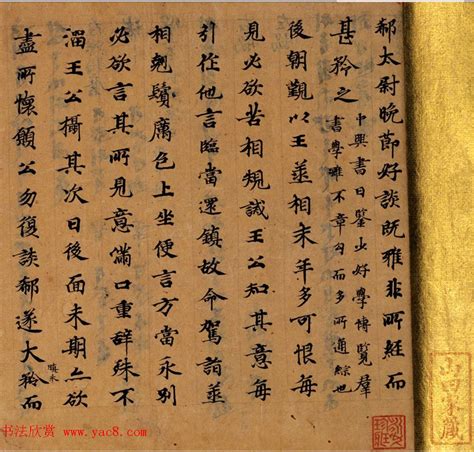 郗太尉晚節好談既雅非所經而
甚矜之
中興書曰鑒少好學博覽羣
書學雖不章句而多所通綜也
後朝覲以王丞相末年多可恨每
見必欲苦相規誡王公知其意每
引作他言臨當還鎮故命駕詣丞
相翹鬚厲色上坐便言方當永別
必欲言其所見意滿口重辭殊不
溜王公攝其次曰後面未期亦欲
盡所懷願公勿復談郗遂大矜而
山田家藏
书法欣赏 www.yac8.com